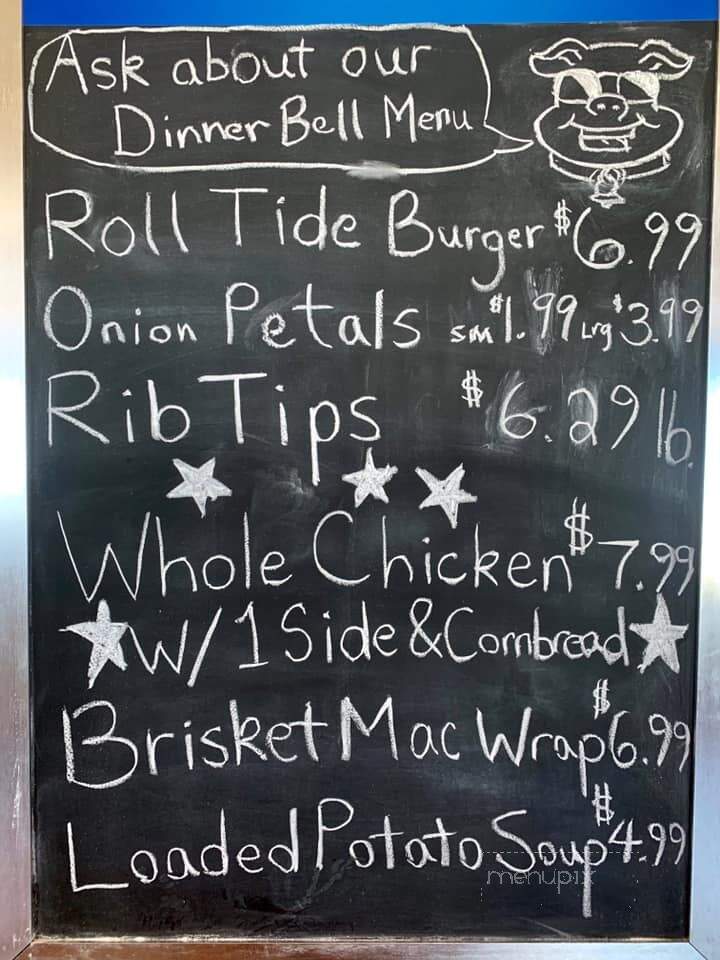 Ask about our
Dinner Bell Menu
Roll Tide Burger $6.99
Onion Petals sm $1.99 Lrg $3.99
Rib Tips $6.29 lb.
Whole Chicken $7.99
W/1 Side & Cornbread
Brisket Mac Wrap $6.99
Loaded Potato Soup $4.99
menupix